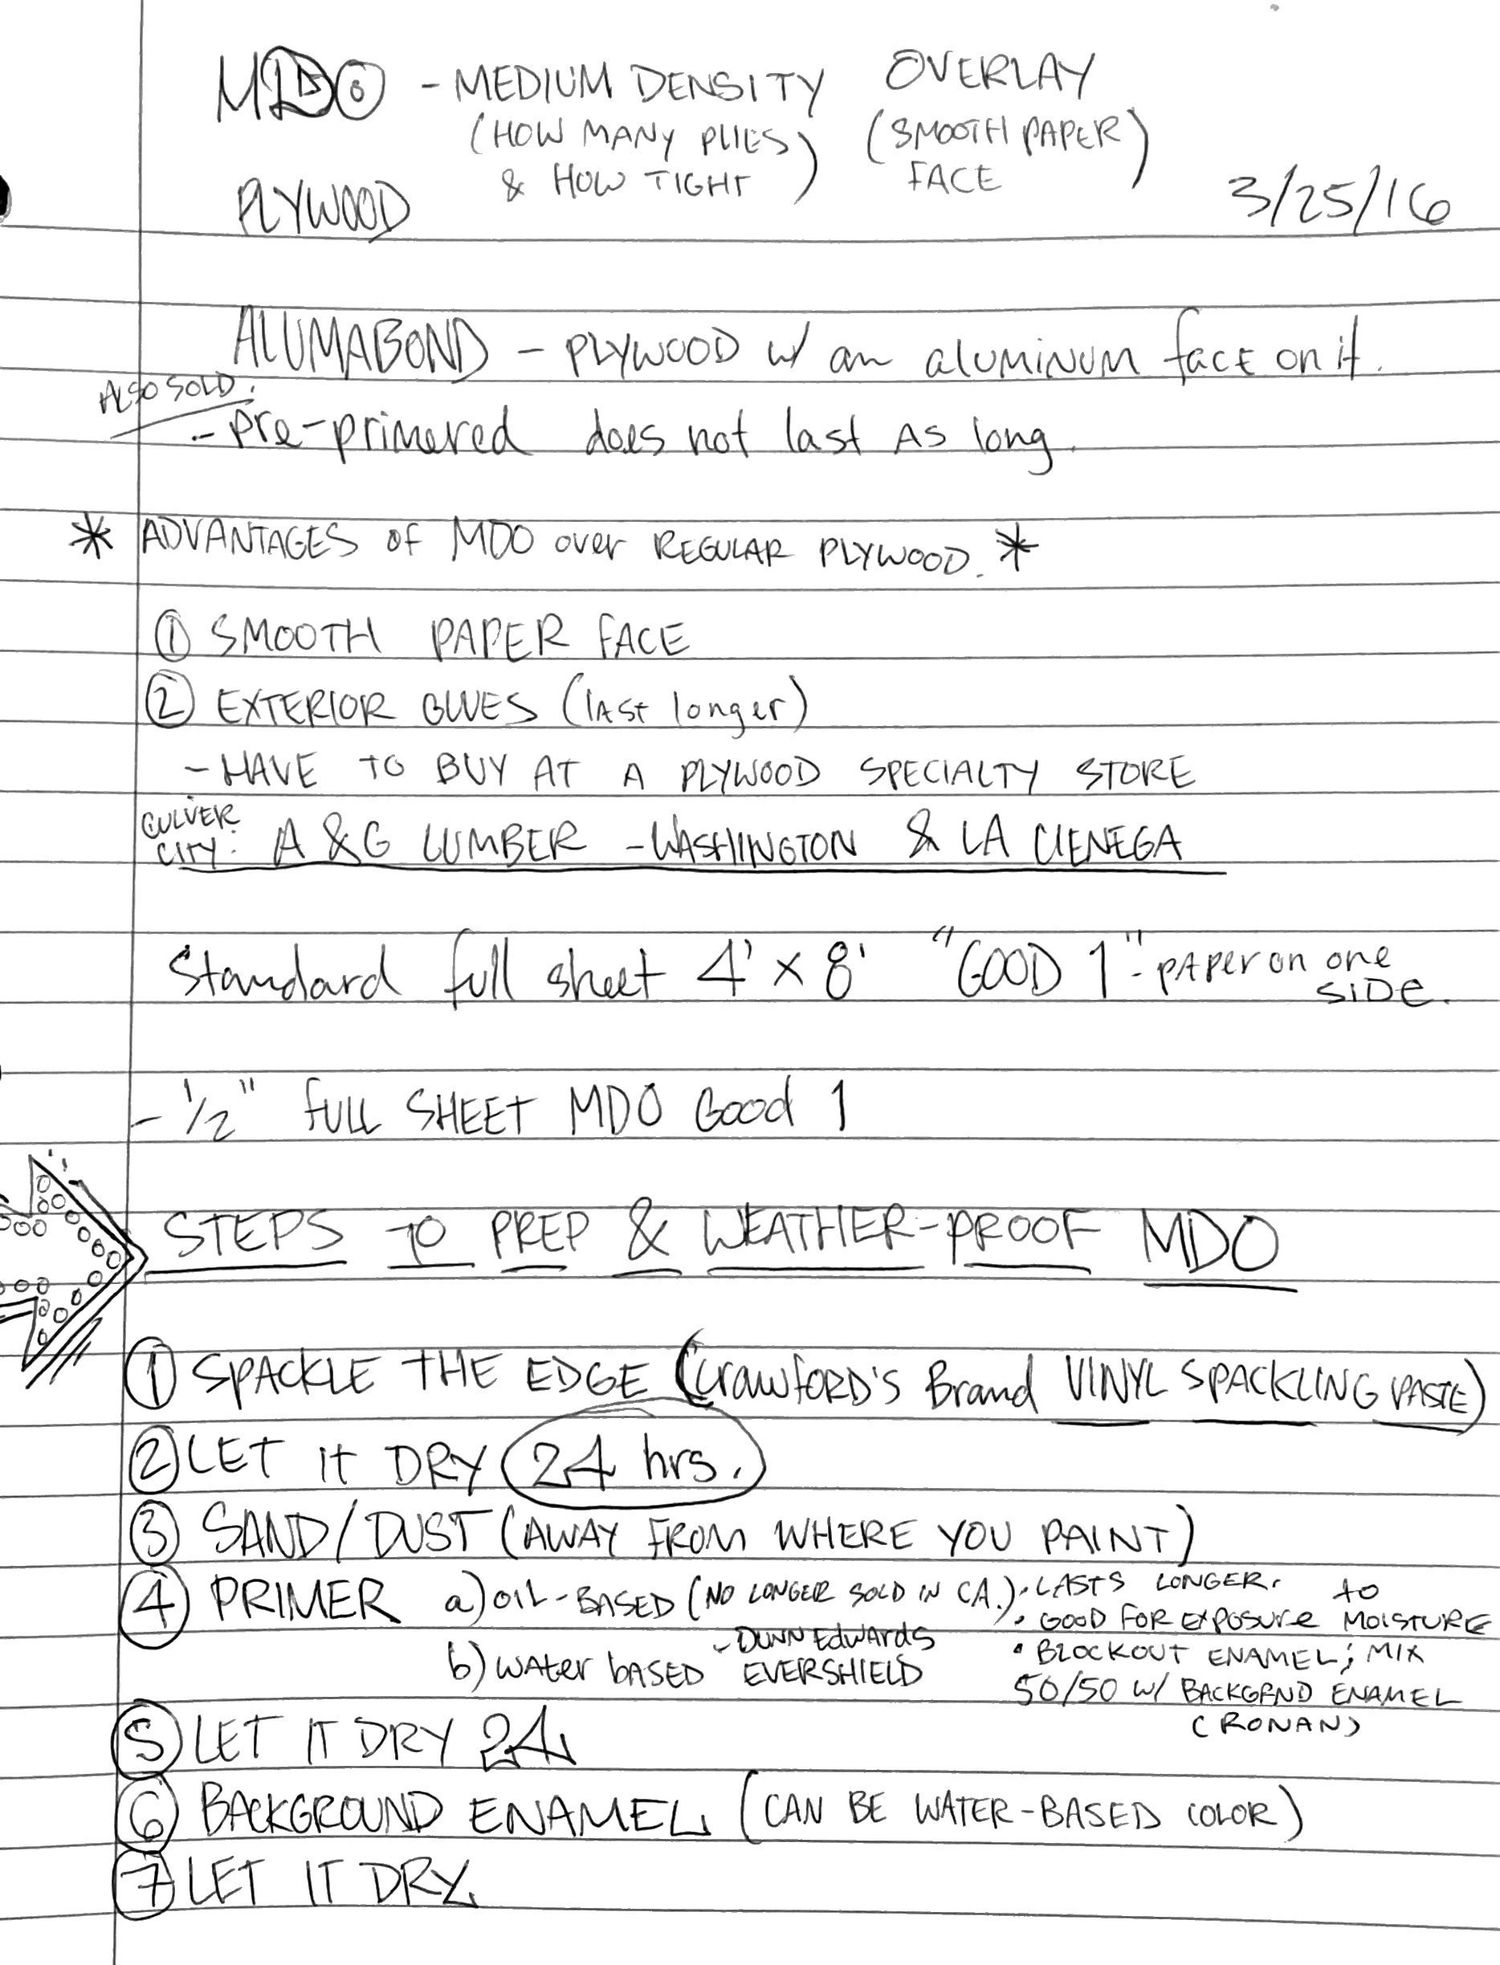 MDO - MEDIUM DENSITY OVERLAY
(HOW MANY PLIES & HOW TIGHT) (SMOOTH PAPER FACE)
PLYWOOD
3/25/16
ALUMABOND - PLYWOOD w/ an aluminum face on it.
ALSO SOLD:
- pre-primered does not last As long.
* ADVANTAGES of MDO over REGULAR PLYWOOD. *
① SMOOTH PAPER FACE
② EXTERIOR GLUES (last longer)
- HAVE TO BUY AT A PLYWOOD SPECIALTY STORE
CULVER CITY: A & G LUMBER - WASHINGTON & LA CIENEGA
Standard full sheet 4' x 8' "GOOD 1" - PAPER on one SIDE.
- 1/2" FULL SHEET MDO Good 1
STEPS TO PREP & WEATHER-PROOF MDO
① SPACKLE THE EDGE (Crawford's Brand VINYL SPACKLING PASTE)
② LET IT DRY 24 hrs.
③ SAND/DUST (AWAY FROM WHERE YOU PAINT)
④ PRIMER a) OIL-BASED (NO LONGER SOLD IN CA.) • LASTS LONGER.
• GOOD FOR EXPOSURE TO MOISTURE
b) WATER BASED - DUNN EDWARDS EVERSHIELD
• BLOCKOUT ENAMEL; MIX
50/50 W/ BACKGRND ENAMEL
(RONAN)
⑤ LET IT DRY 24.
⑥ BACKGROUND ENAMEL (CAN BE WATER-BASED COLOR)
⑦ LET IT DRY.